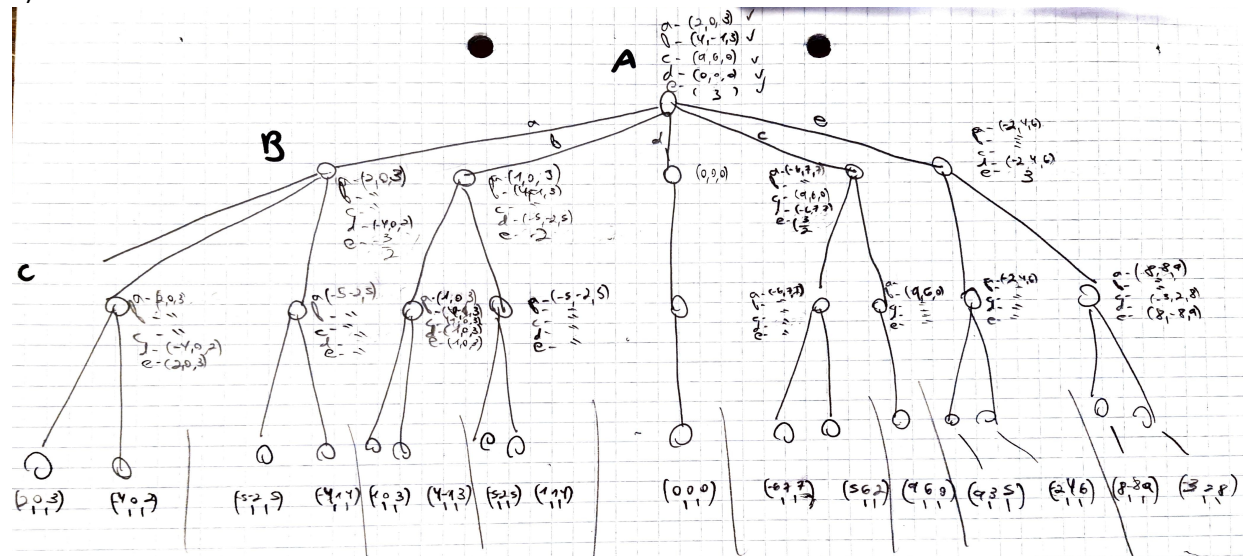 a - (2,0,3) ✓
b - (4,-1,3) ✓
c - (9,6,0) ✓
d - (0,0,0) ✓
e - ( 3 ) ✓
A
a
b
d
c
e
B
a - (2,0,3)
b - "
c - "
d - (-4,0,2)
e - -3/2
a - (1,0,3)
b - (4,-1,3)
c - "
d - (-5,-2,5)
e - -2
(0,0,0)
a - (-6,7,7)
b - "
c - (9,6,0)
d - (-6,7,7)
e - (3/2
a - (-2,4,6)
b - "
c - "
d - (-2,4,6)
e - 3
C
a - 2,0,3
b - "
c - "
d - (-4,0,2)
e - (2,0,3)
a (-5-2,5)
b - "
c - "
d - "
e - "
a - (1,0,3)
b - (4,-1,3)
c - (1,0,3)
d - (1,0,3)
e - (-1,0,2)
a - (-5,-2,5)
b - "
c - "
d - "
e - "
a - (-6,7,7)
b - "
c - "
d - "
e - "
a - (9,6,0)
b - "
c - "
d - "
e -
a - (-2,4,6)
b - "
c - "
d - "
e - "
a - (8,-8,9)
b - "
c - "
d - (-3,2,8)
e - (8,-8,9)
(2,0,3) (4,0,2) (-5-2,5) (-4,1,4) (1,0,3) (4,-1,3) (5-2,5) (1,1,4) (0,0,0) (-6,7,7) (5,6,2) (9,6,0) (9,3,5) (-2,4,6) (8,-8,9) (-3,2,8)